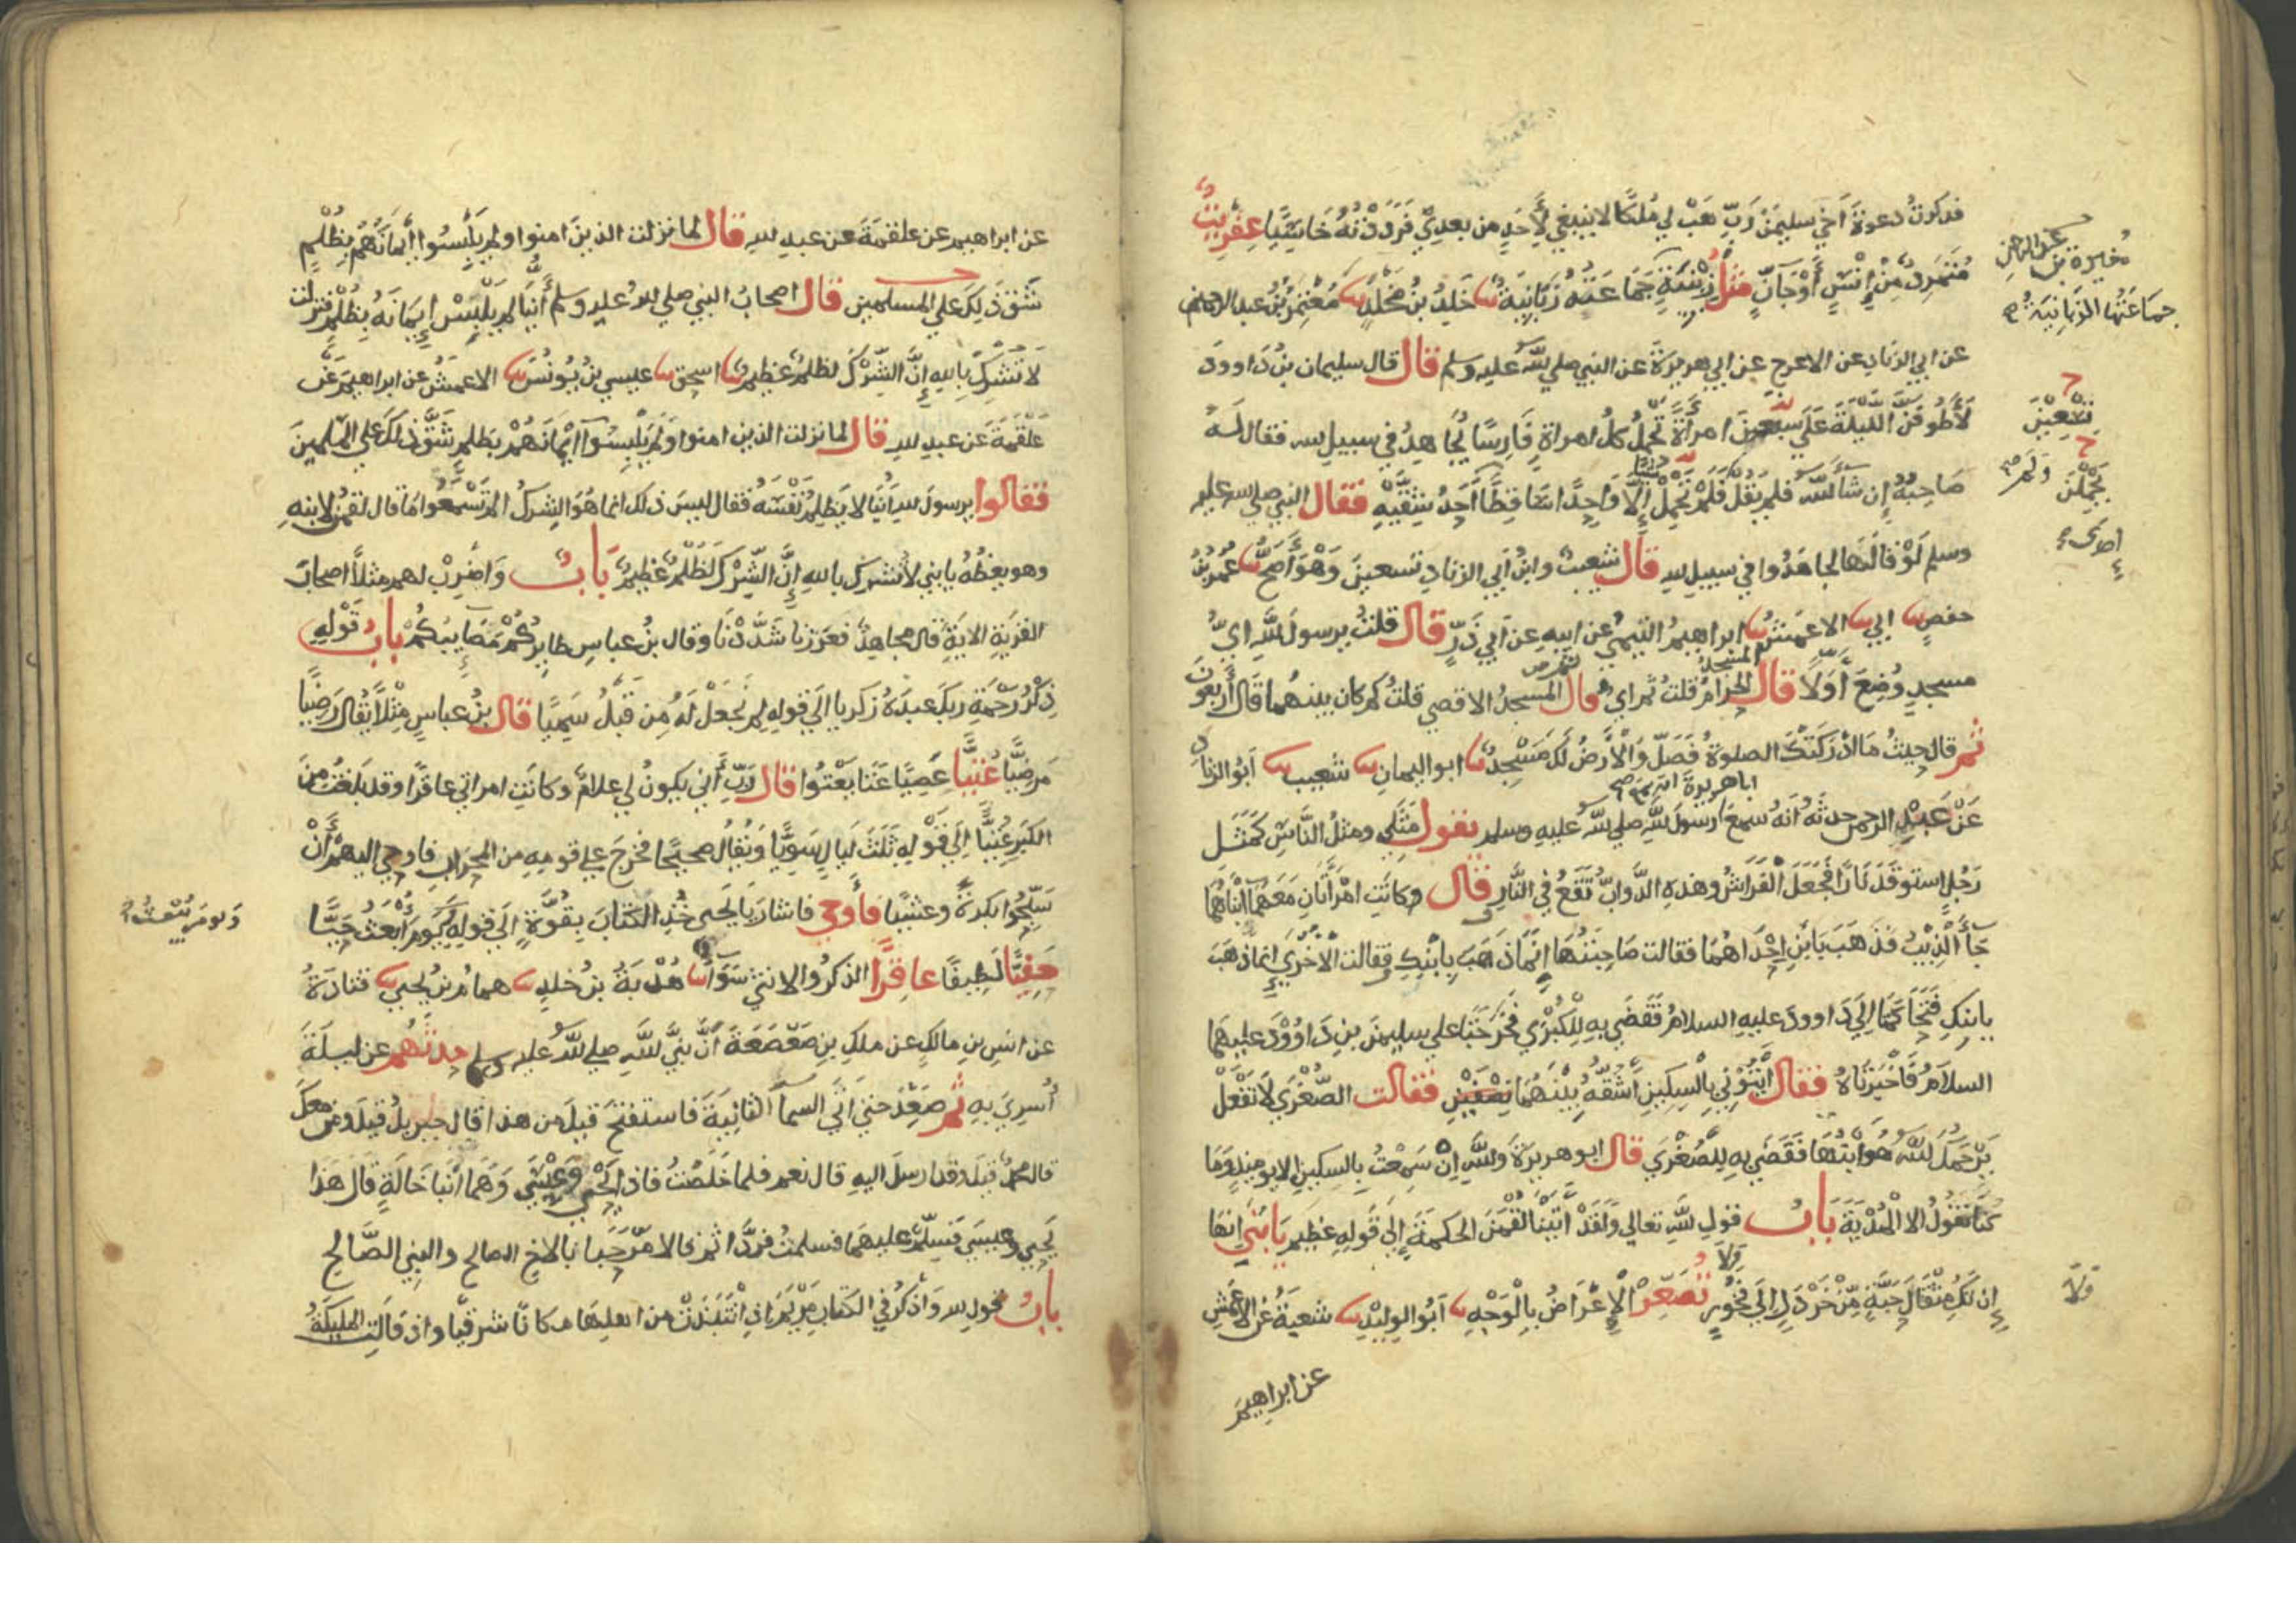 فذكرتُ دعوةَ اَخي سليمنَ رَبِّ هَبْ لي مُلكًا لا ينبغي لِأَحَدٍ من بعدِي فَرَدَدْتُهُ خَاسِئًا عِفْرِيتٌ
مُتَمَرِدٌ مِنْ إِنْسٍ أَوْجَآنٍّ مثلُ زِبْنِيَةٍ جَمَاعَتُهُ زَبَانِيَةٌ نا خَلِدُ بنُ مَخْلَدٍ نا مُغيرةُ بنُ عبدالرحمن
عن ابي الزنادِ عن الاعرج عن ابي هريرةَ عن النبي صلي اللهُ عليه وسلم قال قال سليمان بنُ دَاوودَ
لَأَطُوفَنَّ اللَّيْلَةَ عَلَي سبعينَ امرأَةً تَحْمِلُ كلُ امراةٍ فَارِسًا يُجَاهِدُ في سبيلِ الله فقال لَهُ
صَاحِبُهُ إِن شَاءَ اللهُ فلم يَقُلْ فَلَمْ تَحْمِلْ إِلَّا وَاحِدًا سَاقِطًا أَحَدُ شِقَّيْهِ فقال النبي صلي الله عليه
وسلم لَوْ قالَهَا لجاهَدُوا في سبيلِ لله قال شعيبٌ وابنُ أبي الزنادِ تسعينَ وَهْوَ أَصَحُّ نا عُمَرُ بنُ
حفصٍ نا ابي نا الاعمشُ نا ابراهيمُ التيميُ عن ابيهِ عن ابي ذَرٍّ قال قلتُ يرسولَ للهِ ايُّ
مسجدٍ وُضِعَ أَوَّلًا قال المسجدُ الحرامُ قلتُ ثم اي قال ثم المسجدُ الاقصي قلتُ كم كان بينهما قال أَرْبعونَ
ثم قال حيثُ مَا اَدْرَكَتْكَ الصلوةُ فَصَلِّ وَالْأَرضُ لَكَ مَسْجِدٌ نا ابو اليمانِ نا شعيب نا اَبُو الزناد
عَنْ عَبْدِ الرحمن حدثَهُ اَنَّهُ سمعَ اباهريرةَ انه سمع رسولَ للهِ صلي للهُ عليهِ وسلم يقول مَثَلِي ومثلُ النَّاسِ كَمَثَلِ
رَجُلٍ استوقَدَ نَارًا فَجَعَلَ الْفَرَاشُ وهذهِ الدَّوابُّ تَقَعُ في النَّارِ وقال وكانَتِ امْرَأَتَانِ مَعَهُمَا ابْنَاهُمَا
جَآءَ الذِّئْبُ فَذَهَبَ بِابْنِ اِحْدَاهُمَا فقالت صَاحِبَتُهَا اِنَّمَا ذَهَبَ بِابْنِكِ وقالت الْأُخْرَي اِنما ذهبَ
بابنِكِ فَتَحَاكَمَتَا اِلَي دَاوودَ عليهِ السلامُ فَقَضَي بِهِ لِلْكُبْرَي فَخَرَجَتَا علي سليمنَ بنِ دَاوُودَ عليهمَا
السلامُ فَأَخْبَرَتَاهُ فقال ائْتُوْنِي بِالسِكِينِ أَشُقُّهُ بَيْنَهُمَا فقالت الصُّغْرَي لَا تَفْعَلْ
يَرْحَمُكَ للهُ هُوَ ابْنُهَا فَقَضَي بِهِ لِلصُّغْرَي قال ابو هريرةَ وَللهِ اِنْ سَمِعْتُ بِالسِكينِ الا يومئذٍ وَمَا
كُنَّا نقولُ الا الْمُدْيَةَ بَابُ قولِ للهِ تعالي وَلَقَدْ اَتَيْنَا لُقْمَنَ الحكمةَ إِلَي قَولِهِ عَظِيم يَا بُنَيَّ انها
إِن تَكُ مِثْقَالَ حَبَّةٍ مِّنْ خَرْدَلٍ اِلَي فَخُورٍ وَلَا تُصَعِّرْ الْإِعْرَاضُ بِالْوَجْهِ نا اَبُو الوليْدِ نا شعبَةُ عَنِ الأعمشِ
عن ابراهيمَ
مُغيرة بن عبد الرحمن
جمَاعَتُهَا الزبَانِيَةُ
تِسْعِينَ
تَحْمِلْنَ
وَلَمْ
وَلَا
عن ابراهيم عن علقمَةَ عن عبدِ للهِ قال لما نزلت الذينَ امنوا ولم يَلْبِسُوا إِيمَانَهُم بِظُلْمٍ
شَقَّ ذَلِكَ عَلَي المسلمين قال اصحابُ النبيِ صلي للهُ عليهِ وسلم أَيُّنَا لم يَلْبِسْ إِيمَانَهُ بِظُلْمٍ فنزلت
لَا تُشْرِكْ بِاللهِ إِنَّ الشِّرْكَ لظلمٌ عظيمٌ نا اسحق نا عيسي بنُ يُونُسَ نا الاعمشُ عن ابراهيمَ عَن
علقَمَةَ عن عبدِ للهِ قال لما نزلت الذين امنوا وَلَمْ يَلْبِسُوا اِيْمَانَهُمْ بظلمٍ شَقَّ ذلكَ علي المسلمينَ
فقالوا يرسولَ للهِ اَيُّنَا لا يَظلِمُ نَفْسَهُ فقال ليسَ ذلك انما هُوَ الشِركُ الم تَسْمَعُوا مَا قال لقمنُ لابنِهِ
وهو يعِظُهُ يا بني لَا تُشْرِكْ باللهِ إِنَّ الشِّرْكَ لَظُلْمٌ عَظِيمٌ بَابُ وَاضْرِبْ لهم مثلًا اصحابَ
القَرْيَةِ الايةِ قال مجاهدٌ فعززنا شَدَّدْنَا وقال بنُ عباسٍ طايِرُكُمْ مَصَايِبُكُمْ بابُ قَوْلِهِ
ذِكْرُ رَحْمَةِ ربكَ عبدَهُ زكريا اِلَي قولهِ لم نَجْعَلْ لَهُ مِن قَبْلُ سَمِيًّا قال بنُ عباسٍ مِثْلًا يُقَالُ رَضِيًّا
مَرضِيًّا عُتِيًّا عَصِيًّا عَتَا يَعْتُوا قال رَبِّ أَنَّي يكونُ لي غلامٌ وكانَتِ امراتي عاقرًا وقد بلغتُ من
الكبرِ عُتِيًّا اِلَي قَوْلِهِ ثَلَثَ لَيَالٍ سَوِيًّا وَيُقَالُ صحيحًا فخرجَ علي قومهِ من المحرابِ فاوحي اليهمْ أَنْ
سَبِّحُوا بكرةً وعشيًا فأوحي فاشارَ يَا يَحيي خُذِ الكتابَ بِقُوَّةٍ اِلَي قولهِ وَيَوْمَ يُبْعَثُ حَيًّا
حَفِيًّا لَطِيفًا عاقِرًا الذكرُ والانثي سَوَآءٌ نا هُدْبَةُ بنُ خلدٍ نا همامُ بنُ يحيي نا قتادةُ
عن انسِ بنِ مالكٍ عن ملكِ بنِ صَعْصَعَةَ اَنَّ نَبِيَّ للهِ صلي للهُ عليه وسلم حدثهم عن ليلةَ
أُسرِيَ بهِ ثم صَعِدَ حتي اَتَي السمآَ الثانِيَةَ فاستفتحَ قيلَ من هذا قال جبريلُ قيلَ ومن معكَ
قال محمدٌ قيلَ وقد ارسلَ اليهِ قال نعم فلما خَلَصْتُ فاذا يَحْيَي وَعِيْسَي وَهُمَا ابْنَا خَالَةٍ قال هذَا
يَحيي وعيسَي فَسَلِّمْ عليهمَا فسلمتُ فردَّا ثم قالا مَرْحَبا بالاخِ الصالحِ والنبِي الصَّالحِ
بابُ قولِ لله وَاذْكُرْ في الكتَابِ مَرْيَمَ اذِ انْتَبَذَتْ من اهلِهَا مكانًا شرقيًا واذ قَالَتِ الملَيِكَةُ
وَيوم يُبْعَثُ